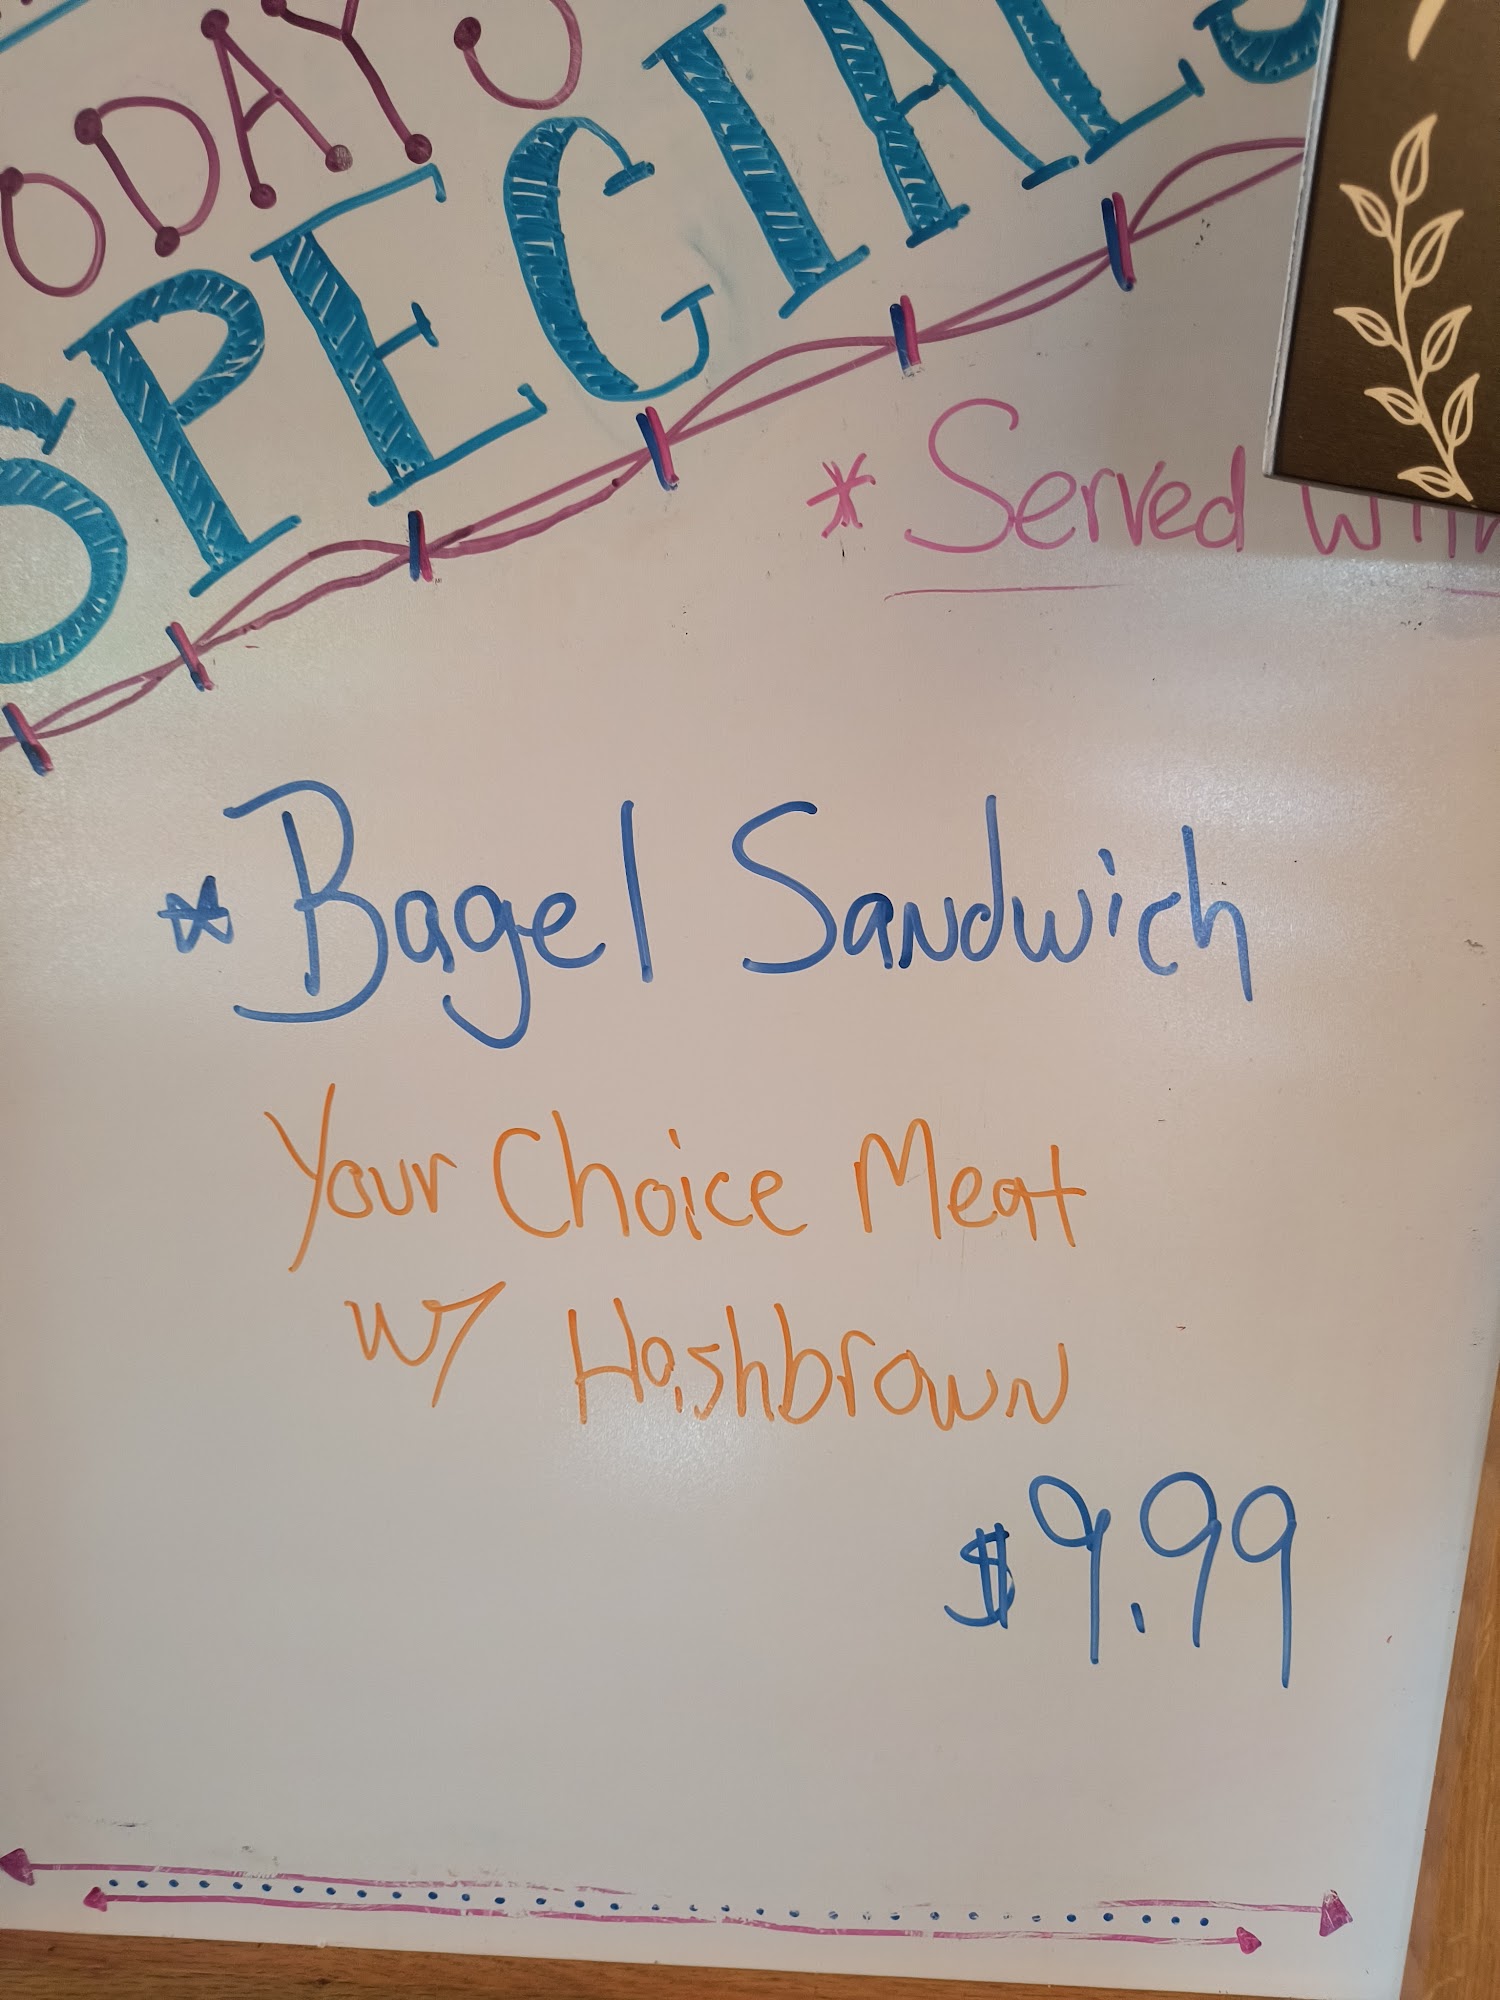 TODAY'S
SPECIALS
* Served With
* Bagel Sandwich
Your Choice Meat
w/ Hashbrown
$9.99